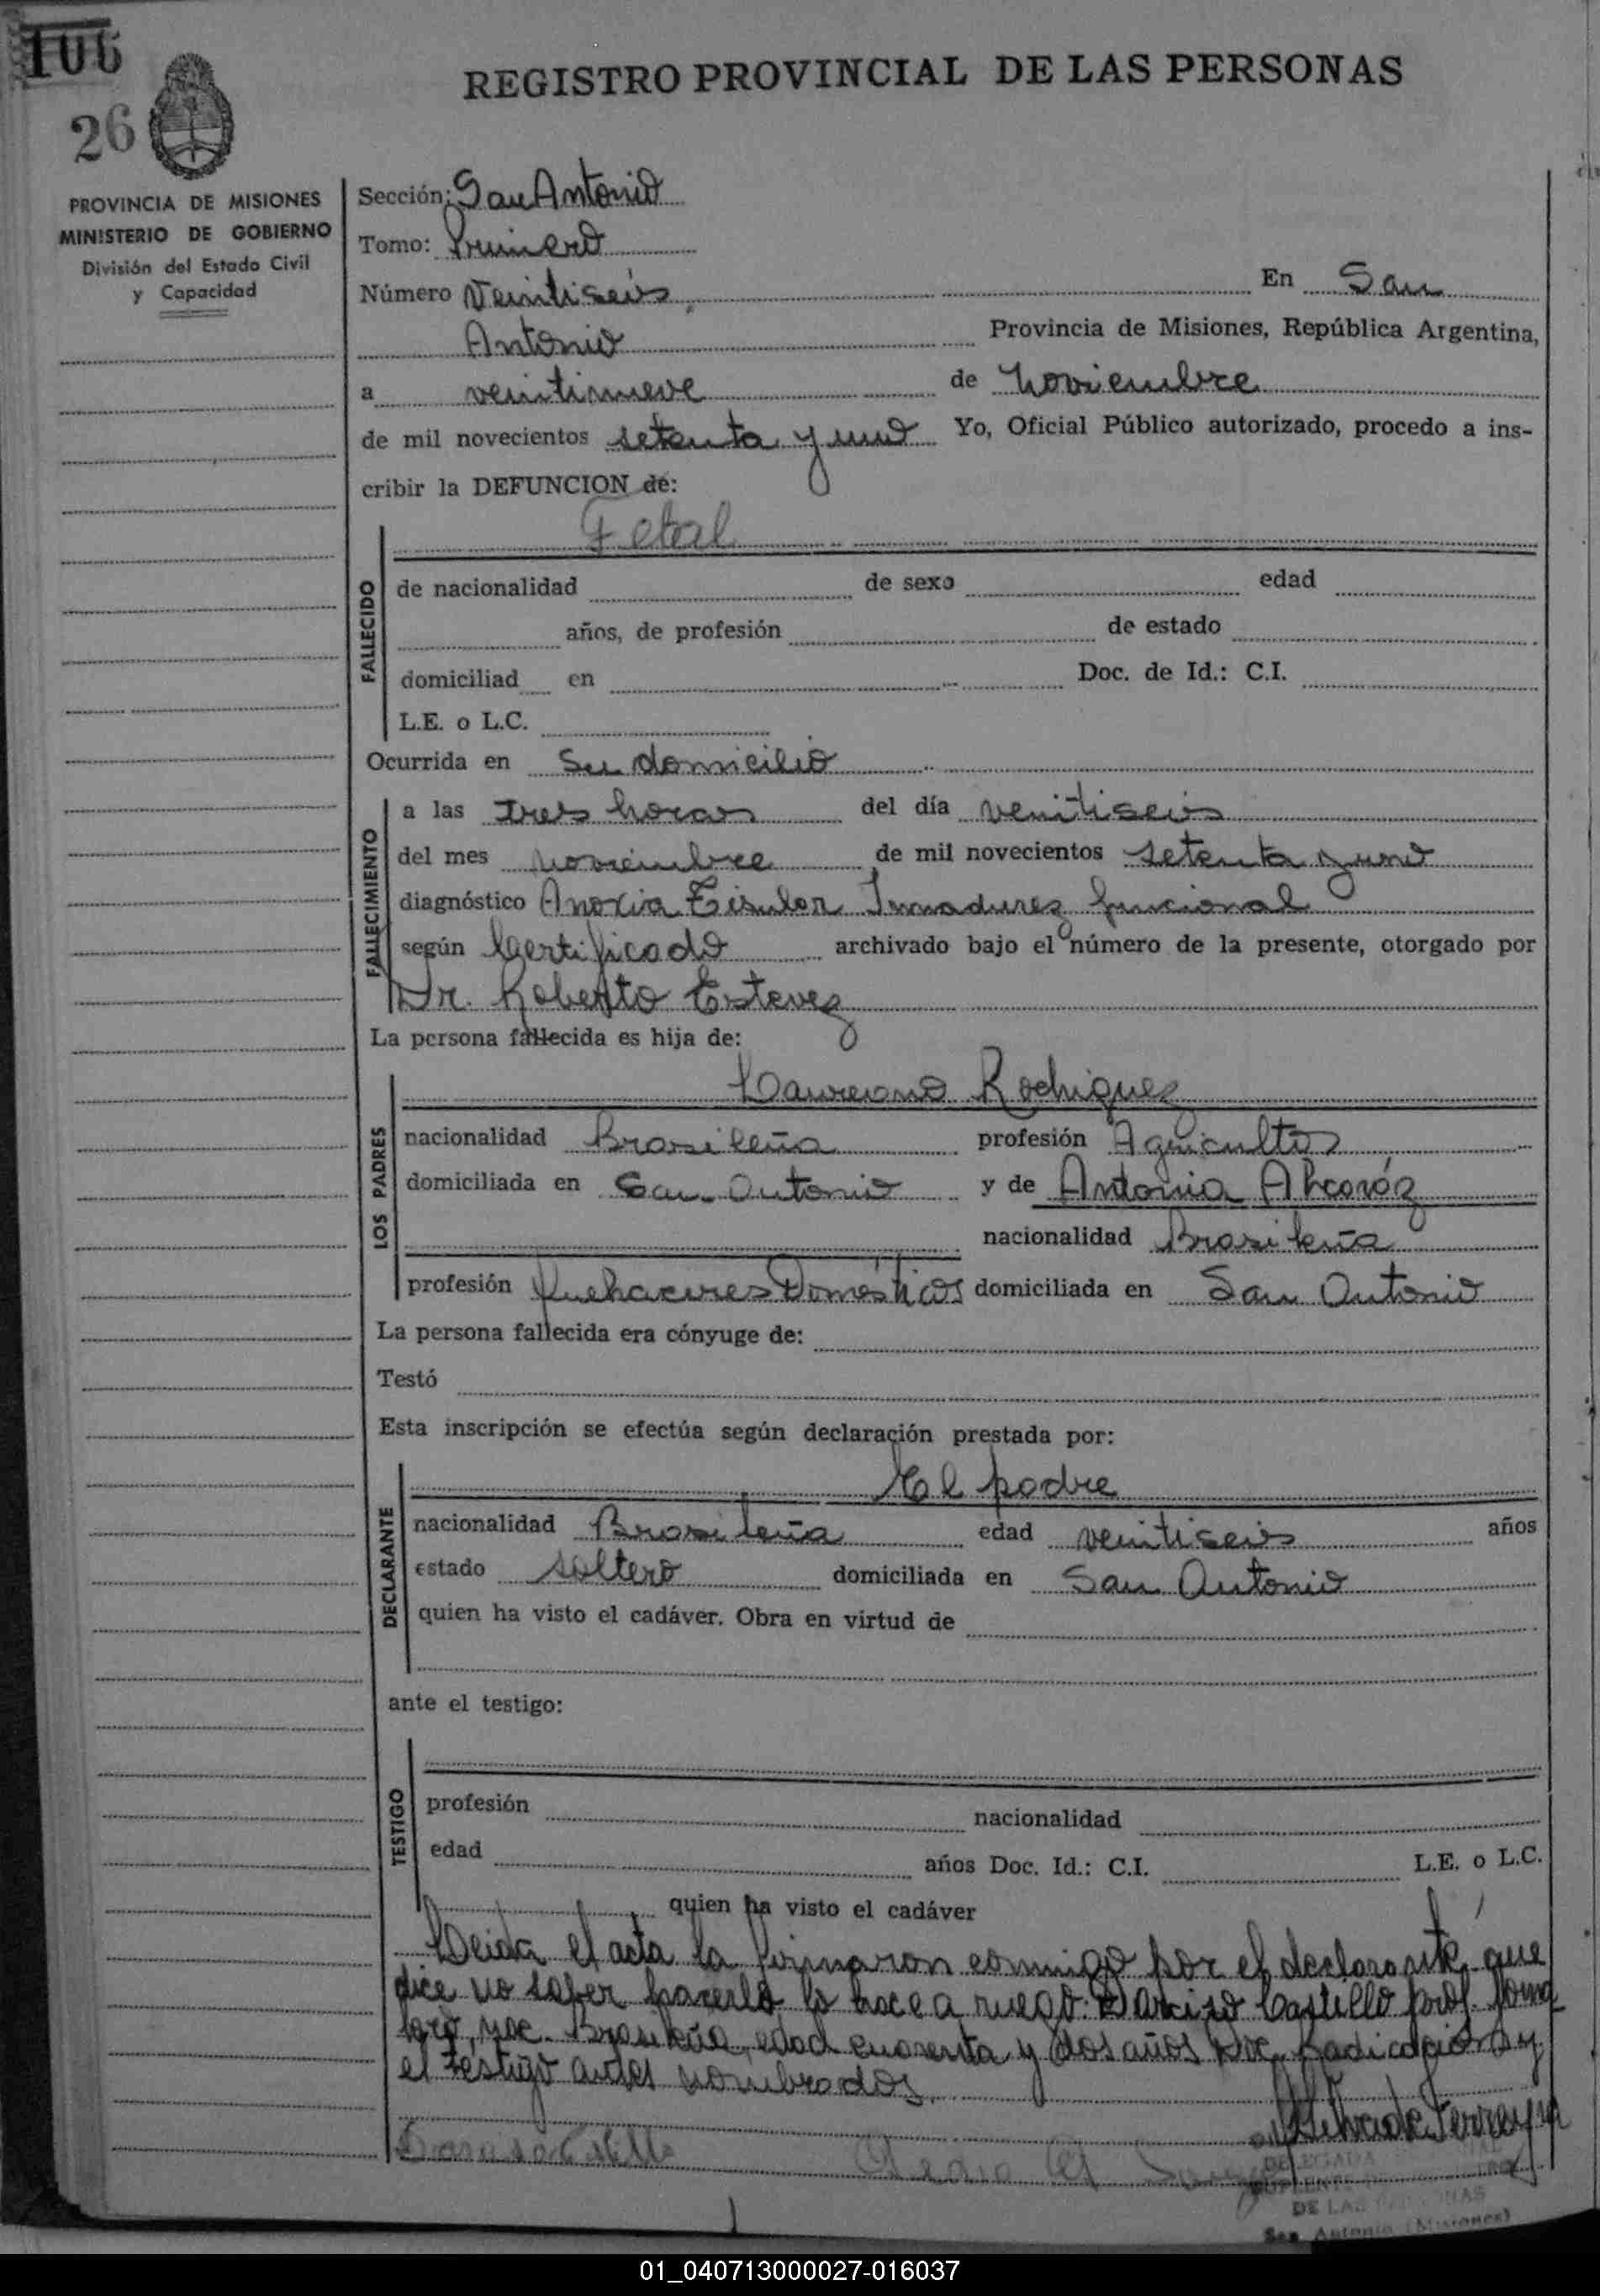 106
26
REGISTRO PROVINCIAL DE LAS PERSONAS
PROVINCIA DE MISIONES
MINISTERIO DE GOBIERNO
División del Estado Civil
y Capacidad
Sección: San Antonio
Tomo: Primero
Número Veintiseis En San
Antonio Provincia de Misiones, República Argentina,
a veintinueve de Noviembre
de mil novecientos setenta y uno Yo, Oficial Público autorizado, procedo a ins-
cribir la DEFUNCION de:
Fetal
FALLECIDO
de nacionalidad de sexo edad
años, de profesión de estado
domiciliad en Doc. de Id.: C.I.
L.E. o L.C.
Ocurrida en Su domicilio
FALLECIMIENTO
a las tres horas del día veintiseis
del mes noviembre de mil novecientos setenta y uno
diagnóstico Anoxia Tisular Inmadurez funcional
según Certificado archivado bajo el número de la presente, otorgado por
Dr. Roberto Estevez
La persona fallecida es hija de:
Laureano Rodriguez
LOS PADRES
nacionalidad Brasileña profesión Agricultor
domiciliada en San Antonio y de Antonia
nacionalidad Brasileña
profesión Quehaceres Domésticos domiciliada en San Antonio
La persona fallecida era cónyuge de:
Testó
Esta inscripción se efectúa según declaración prestada por:
El padre
DECLARANTE
nacionalidad Brasileña edad veintiseis años
estado soltero domiciliada en San Antonio
quien ha visto el cadáver. Obra en virtud de
ante el testigo:
TESTIGO
profesión nacionalidad
edad años Doc. Id.: C.I. L.E. o L.C.
quien ha visto el cadáver
Leida el acta la firmaron conmigo por el declarante que
dice no saber hacerlo lo hace a ruego: Darciso Castillo prof. Jorna
lero, nac. Brasileña, edad cuarenta y dos años Doc. Radicación y
el testigo antes nombrados.
DELEGADA
SUPLENTE
DE LAS PERSONAS
San Antonio (Misiones)
01_040713000027-016037